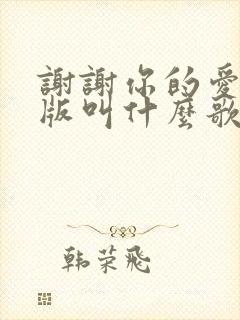 謝謝你的愛
版叫什麼歌
韩荣飛